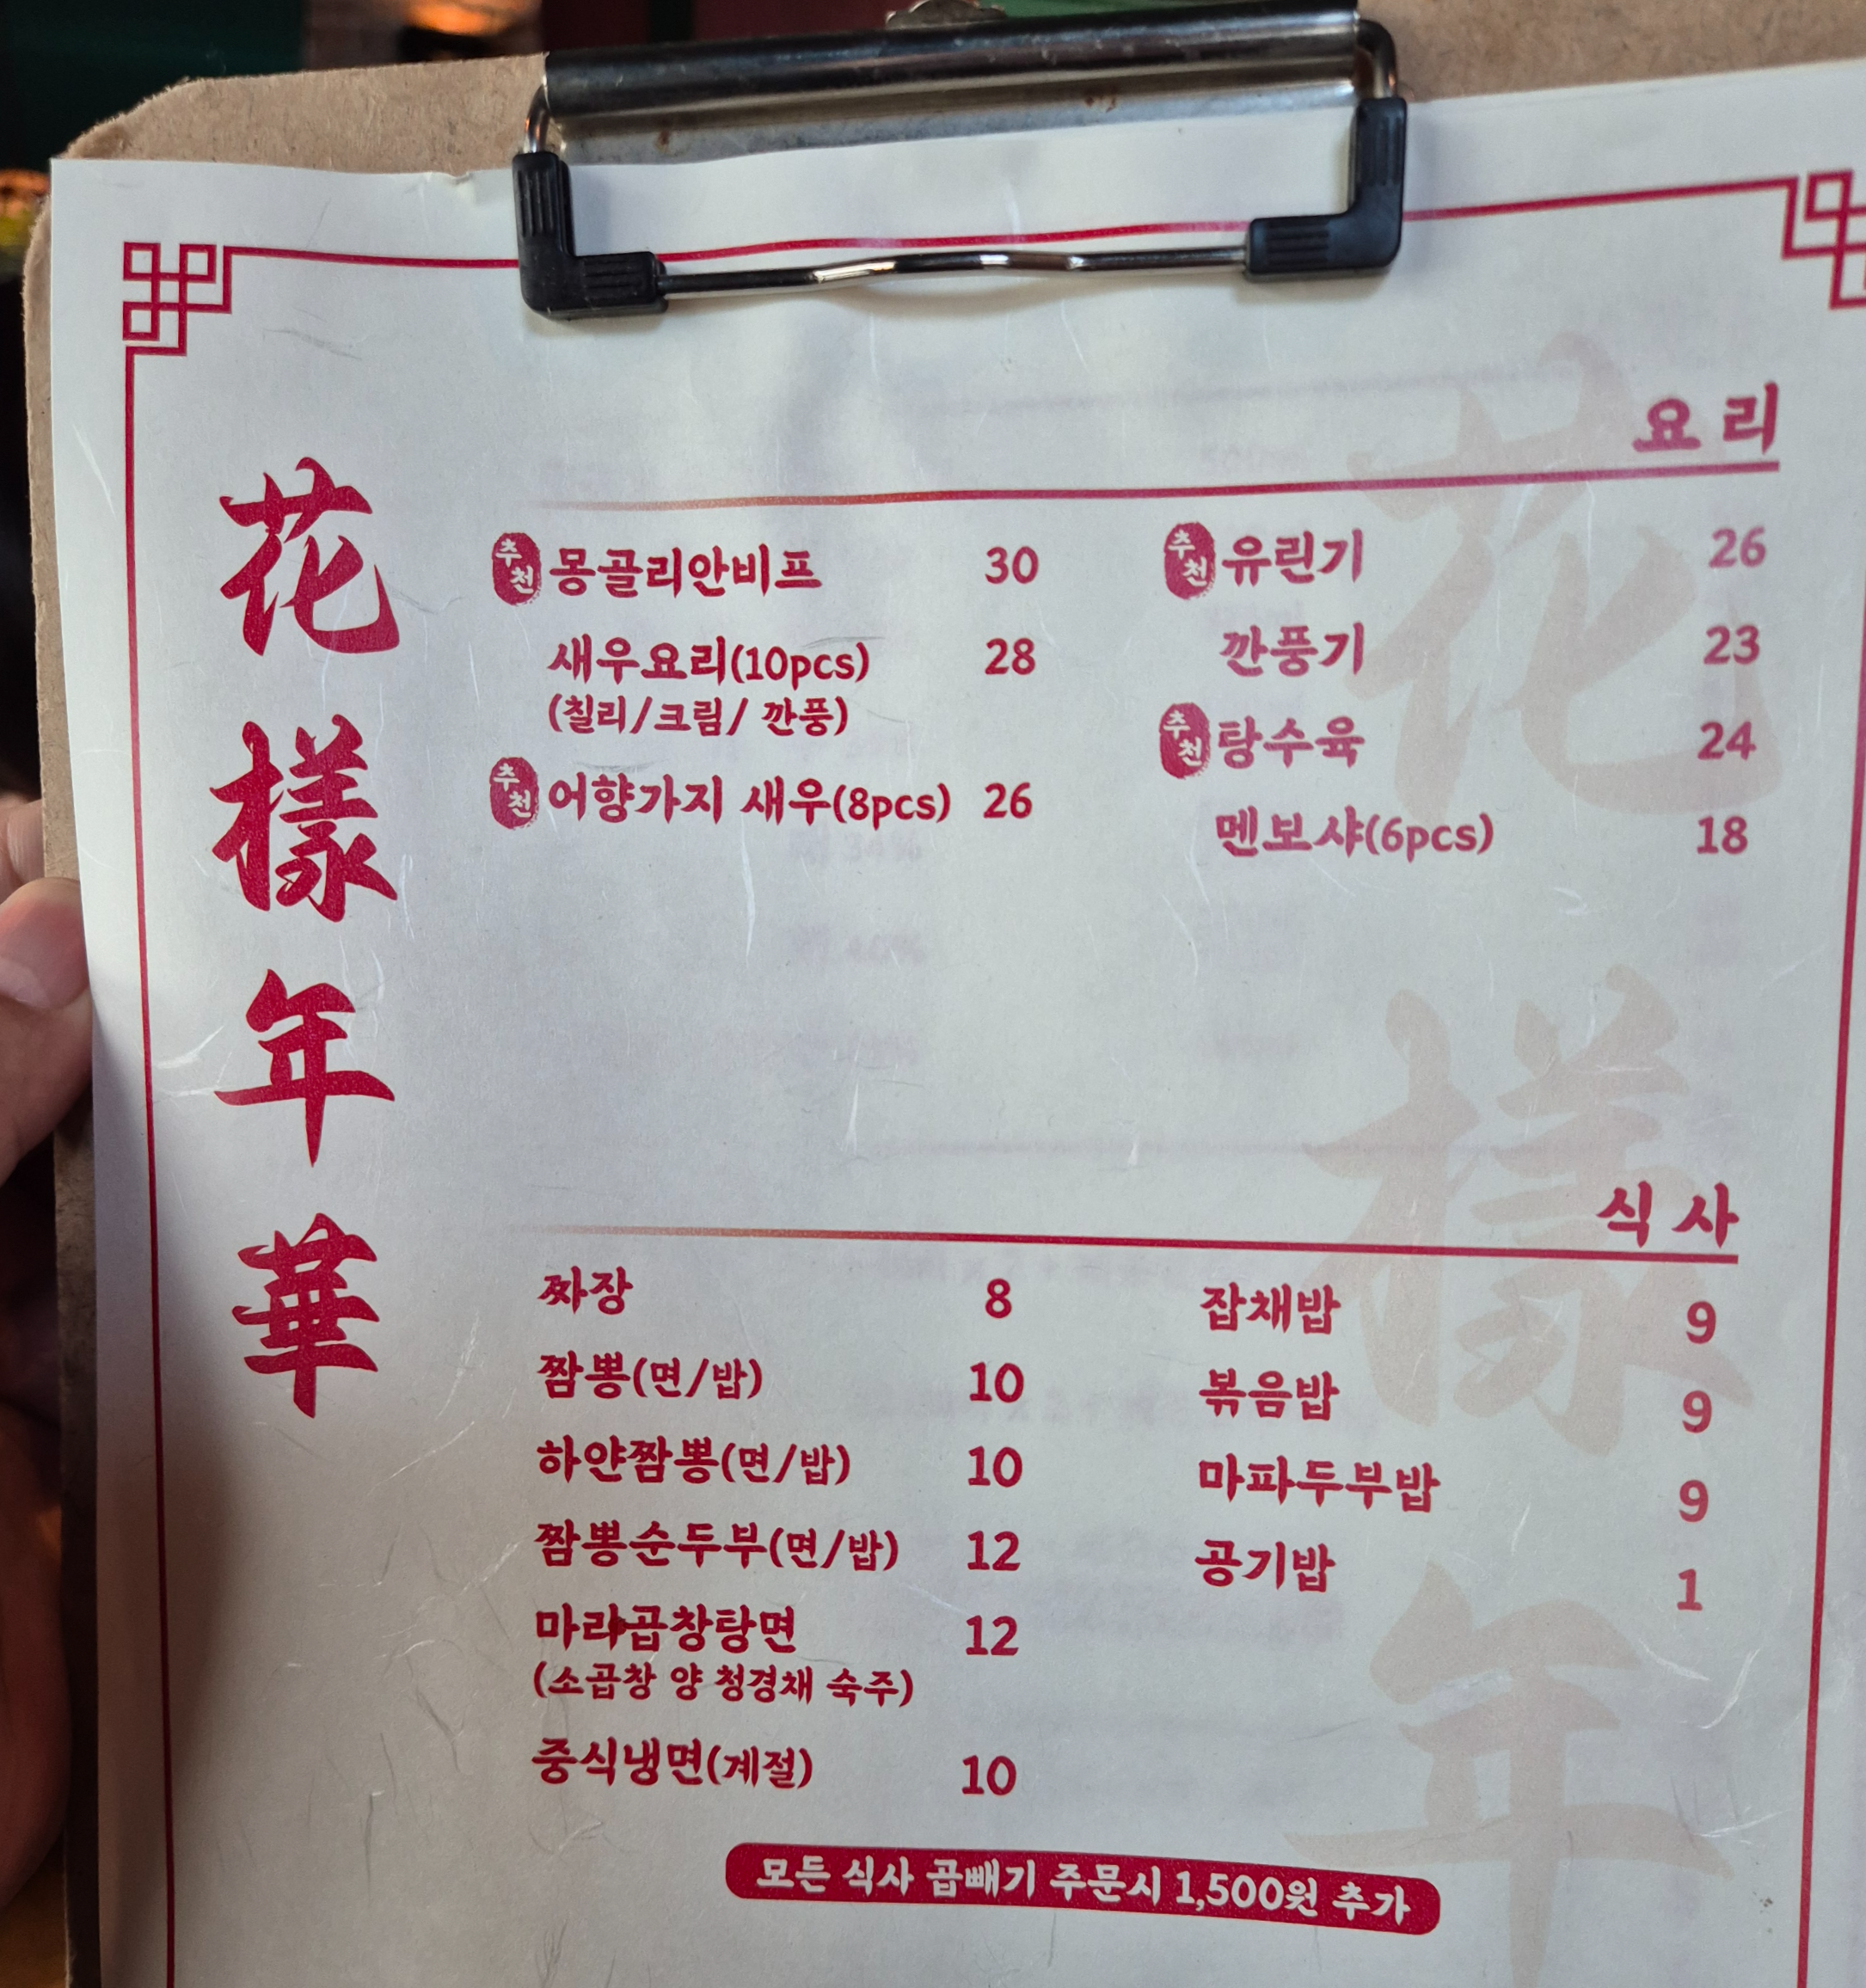 花
樣
年
華
요리
추천 몽골리안비프 30
새우요리(10pcs) 28
(칠리/크림/ 깐풍)
추천 어향가지 새우(8pcs) 26
추천 유린기 26
깐풍기 23
추천 탕수육 24
멘보샤(6pcs) 18
식사
짜장 8
짬뽕(면/밥) 10
하얀짬뽕(면/밥) 10
짬뽕순두부(면/밥) 12
마라곱창탕면 12
(소곱창 양 청경채 숙주)
중식냉면(계절) 10
잡채밥 9
볶음밥 9
마파두부밥 9
공기밥 1
모든 식사 곱빼기 주문시 1,500원 추가
花
樣
年